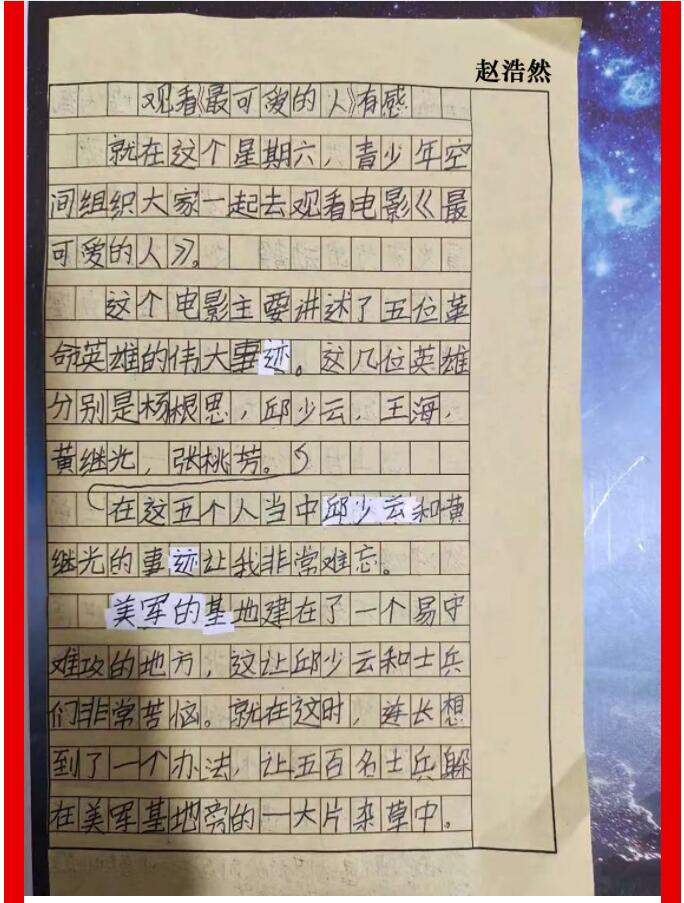 赵浩然
观看《最可爱的人》有感
就在这个星期六，青少年空
间组织大家一起去观看电影《最
可爱的人》。
这个电影主要讲述了五位革
命英雄的伟大事迹。这几位英雄
分别是杨根思，邱少云，王海，
黄继光，张桃芳。
在这五个人当中邱少云和黄
继光的事迹让我非常难忘。
美军的基地建在了一个易守
难攻的地方，这让邱少云和士兵
们非常苦恼。就在这时，连长想
到了一个办法，让五百名士兵躲
在美军基地旁的一大片杂草中。